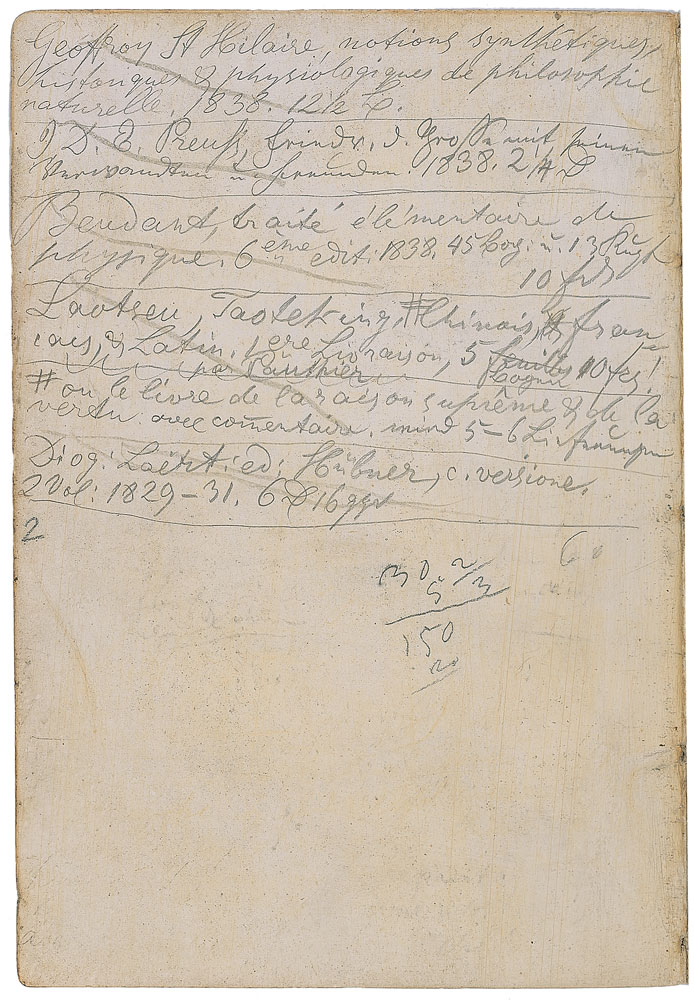 Geoffroy St Hilaire, notions synthétiques,
historiques & physiologiques de philosophie
naturelle. 1838. 12 1/2
J. D. E. Preuß, Friedr. d. Große mit seinen
Verwandten u. Freunden. 1838. 2
Beudant, traité élémentaire de
physique. 6ème edit: 1838. 45 Bog: u. 13
10 frs
Laotseu, Taoteking, # Chinois, fran
cais, & Latin. 1ere Livraison, 5 feuilles 10 frs!
par Pauthier Bogen
# ou le livre de la raison suprême & de la
vertu avec comentaire. wird 5-6 Li
Diog: Laërt: ed: Hübner, c. versione.
2 Vol: 1829-31. 6 16 ggr
2
6
30 2/3
5
150